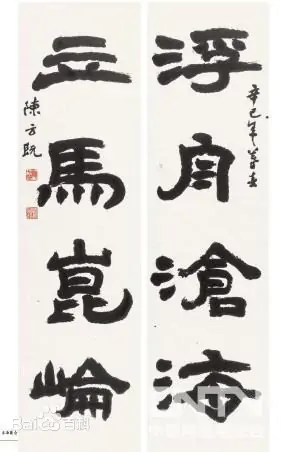 浮舟滄海
辛巳年
立馬崑崘
陳方既
Bai百科